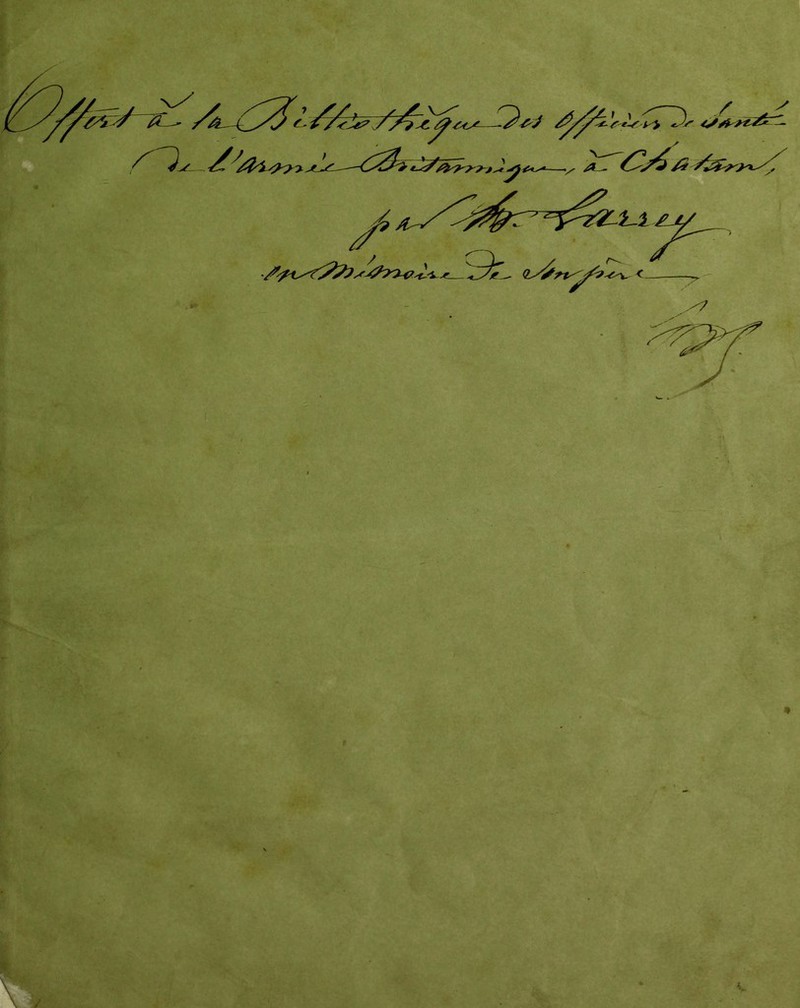 Offert à la Bibliothèque des Officiers de Santé
de l'Armée Britannique, à Chatam,
par H. Larrey
en Mémoire de son père